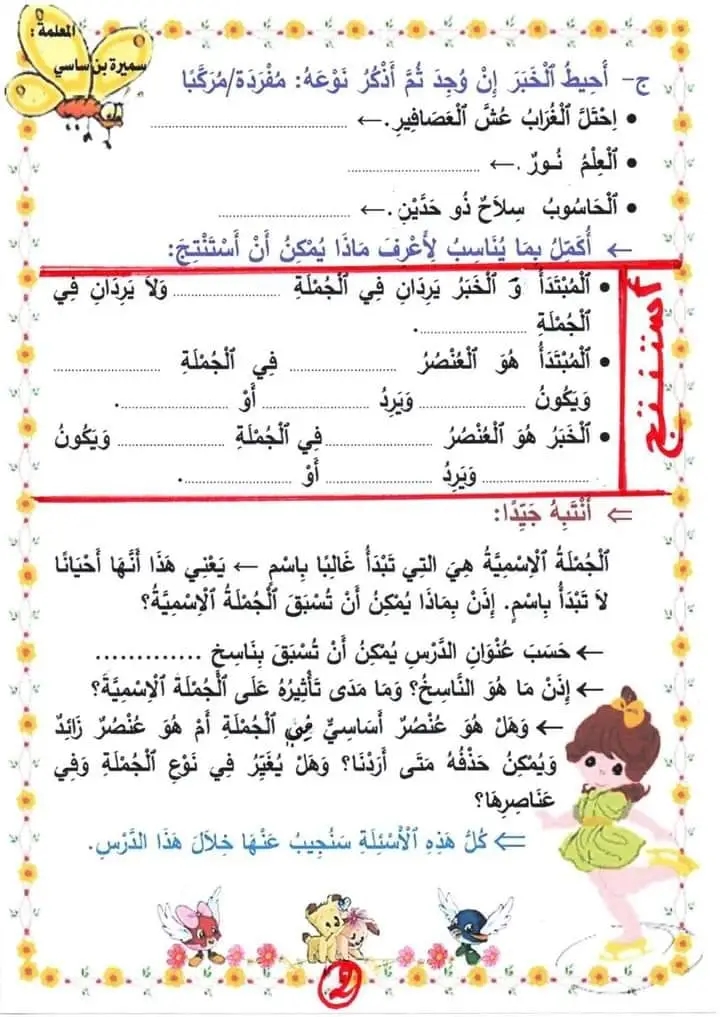 المعلمة :
سميرة بن ساسي
ج- أَحِيطُ ٱلْخَبَرَ إِنْ وُجِدَ ثُمَّ أَذْكُرُ نَوْعَهُ: مُفْرَدَة/مُرَكَّبًا
• اِحْتَلَّ ٱلْغُرَابُ عُشَّ ٱلْعَصَافِيرِ.← ..............................
• ٱلْعِلْمُ نُـورٌ .← ....................
• ٱلْحَاسُوبُ سِلَاحٌ ذُو حَدَّيْنِ.← ....................
← أُكَمِّلُ بِمَا يُنَاسِبُ لِأَعْرِفَ مَاذَا يُمْكِنُ أَنْ أَسْتَنْتِجَ:
أستنتج
• ٱلْمُبْتَدَأُ وَ ٱلْخَبَرُ يَرِدَانِ فِي ٱلْجُمْلَةِ .................... وَلاَ يَرِدَانِ فِي
ٱلْجُمْلَةِ ....................
• ٱلْمُبْتَدَأُ هُوَ ٱلْعُنْصُرُ .................... فِي ٱلْجُمْلَةِ ....................
وَيَكُونُ .................... وَيَرِدُ .................... أَوْ ....................
• ٱلْخَبَرُ هُوَ ٱلْعُنْصُرُ .................... فِي ٱلْجُمْلَةِ .................... وَيَكُونُ
.................... وَيَرِدُ .................... أَوْ ....................
⇐ أَنْتَبِهُ جَيِّدًا:
ٱلْجُمْلَةُ ٱلْاِسْمِيَّةُ هِيَ التِي تَبْدَأُ غَالِبًا بِاسْمٍ ← يَعْنِي هَذَا أَنَّهَا أَحْيَانًا
لاَ تَبْدَأُ بِاسْمٍ. إِذَنْ بِمَاذَا يُمْكِنُ أَنْ تُسْبَقَ ٱلْجُمْلَةُ ٱلْاِسْمِيَّةُ؟
← حَسَبَ عُنْوَانِ الدَّرْسِ يُمْكِنُ أَنْ تُسْبَقَ بِنَاسِخٍ .............
← إِذَنْ مَا هُوَ النَّاسِخُ؟ وَمَا مَدَى تَأْثِيرُهُ عَلَى ٱلْجُمْلَةِ ٱلْاِسْمِيَّةَ؟
← وَهَلْ هُوَ عُنْصُرٌ أَسَاسِيٌّ فِي ٱلْجُمْلَةِ أَمْ هُوَ عُنْصُرٌ زَائِدٌ
وَيُمْكِنُ حَذْفُهُ مَتَى أَرَدْنَا؟ وَهَلْ يُغَيِّرُ فِي نَوْعِ ٱلْجُمْلَةِ وَفِي
عَنَاصِرِهَا؟
⇐ كُلُّ هَذِهِ ٱلْأَسْئِلَةِ سَنُجِيبُ عَنْهَا خِلَالَ هَذَا الدَّرْسِ.
2